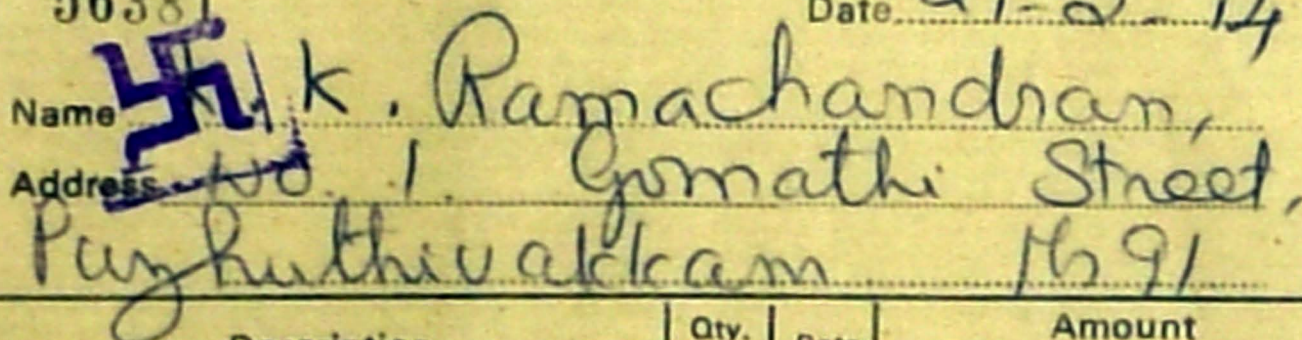 Date
Name K. K. Ramachandran,
Address No. 1. Gomathi Street,
Puzhuthivakkam Ms 91
Qty. Amount